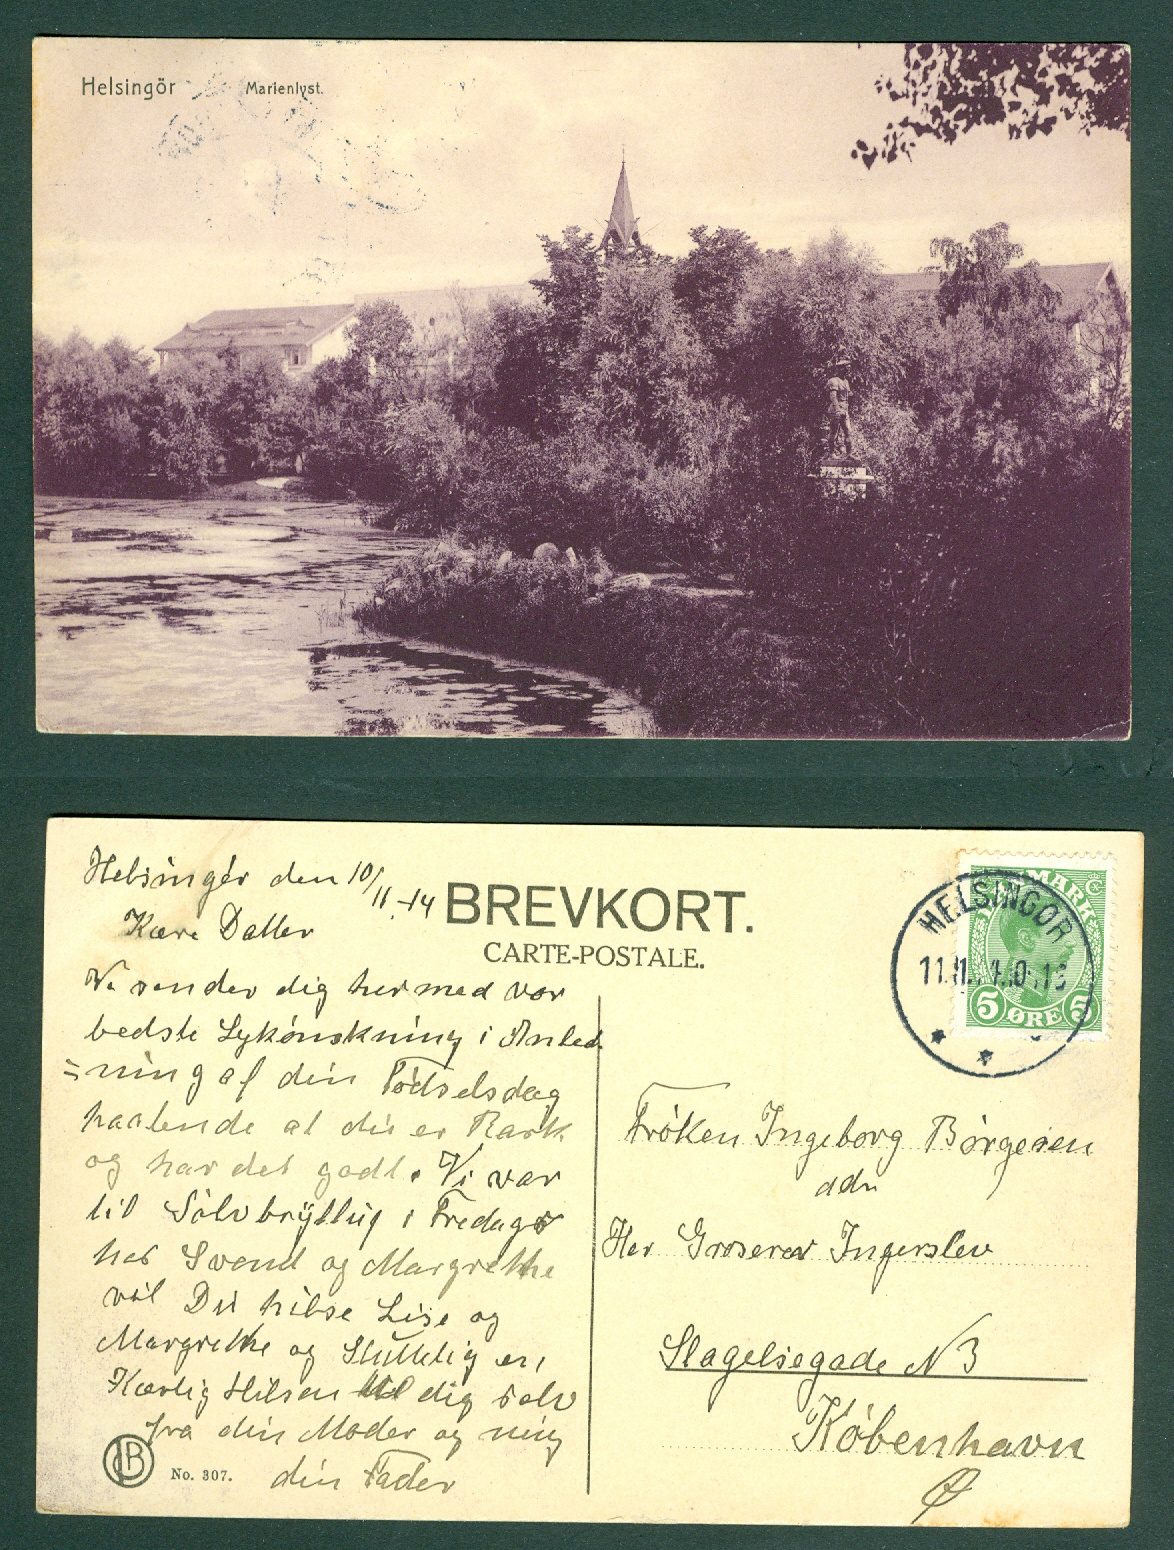 Helsingör Marienlyst.
Helsingør den 10/11-14
BREVKORT.
CARTE-POSTALE.
Kære Datter
Vi sender dig hermed vor
bedste Lykønskning i Anled
=ning af din Fødselsdag
haabende at du er Rask
og har det godt. Vi var
til Sølvbryllup i Fredags
hos Svend og Margrethe
vil Du hilse Lise og
Margrethe og Sluttelig en
Kærlig Hilsen til dig selv
fra din Moder og
din Fader
No. 307.
HELSINGØR
5 ØRE 5
Frøken Ingeborg Børgesen
adr
Her Groserer Ingerslev
Slagelsegade N 3
København
Ø